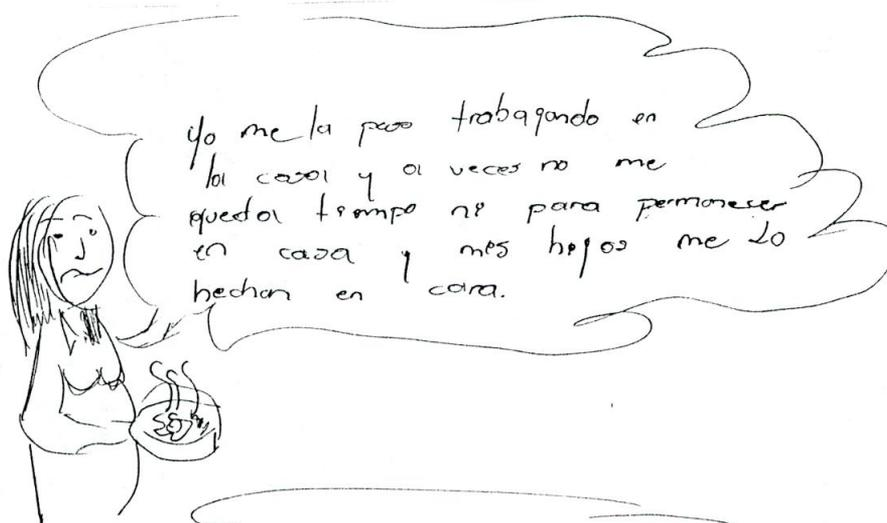 Yo me la paso trabagando en
la casa y a veces no me
queda tiempo ni para permaneser
en casa y mis hijos me lo
hechan en cara.